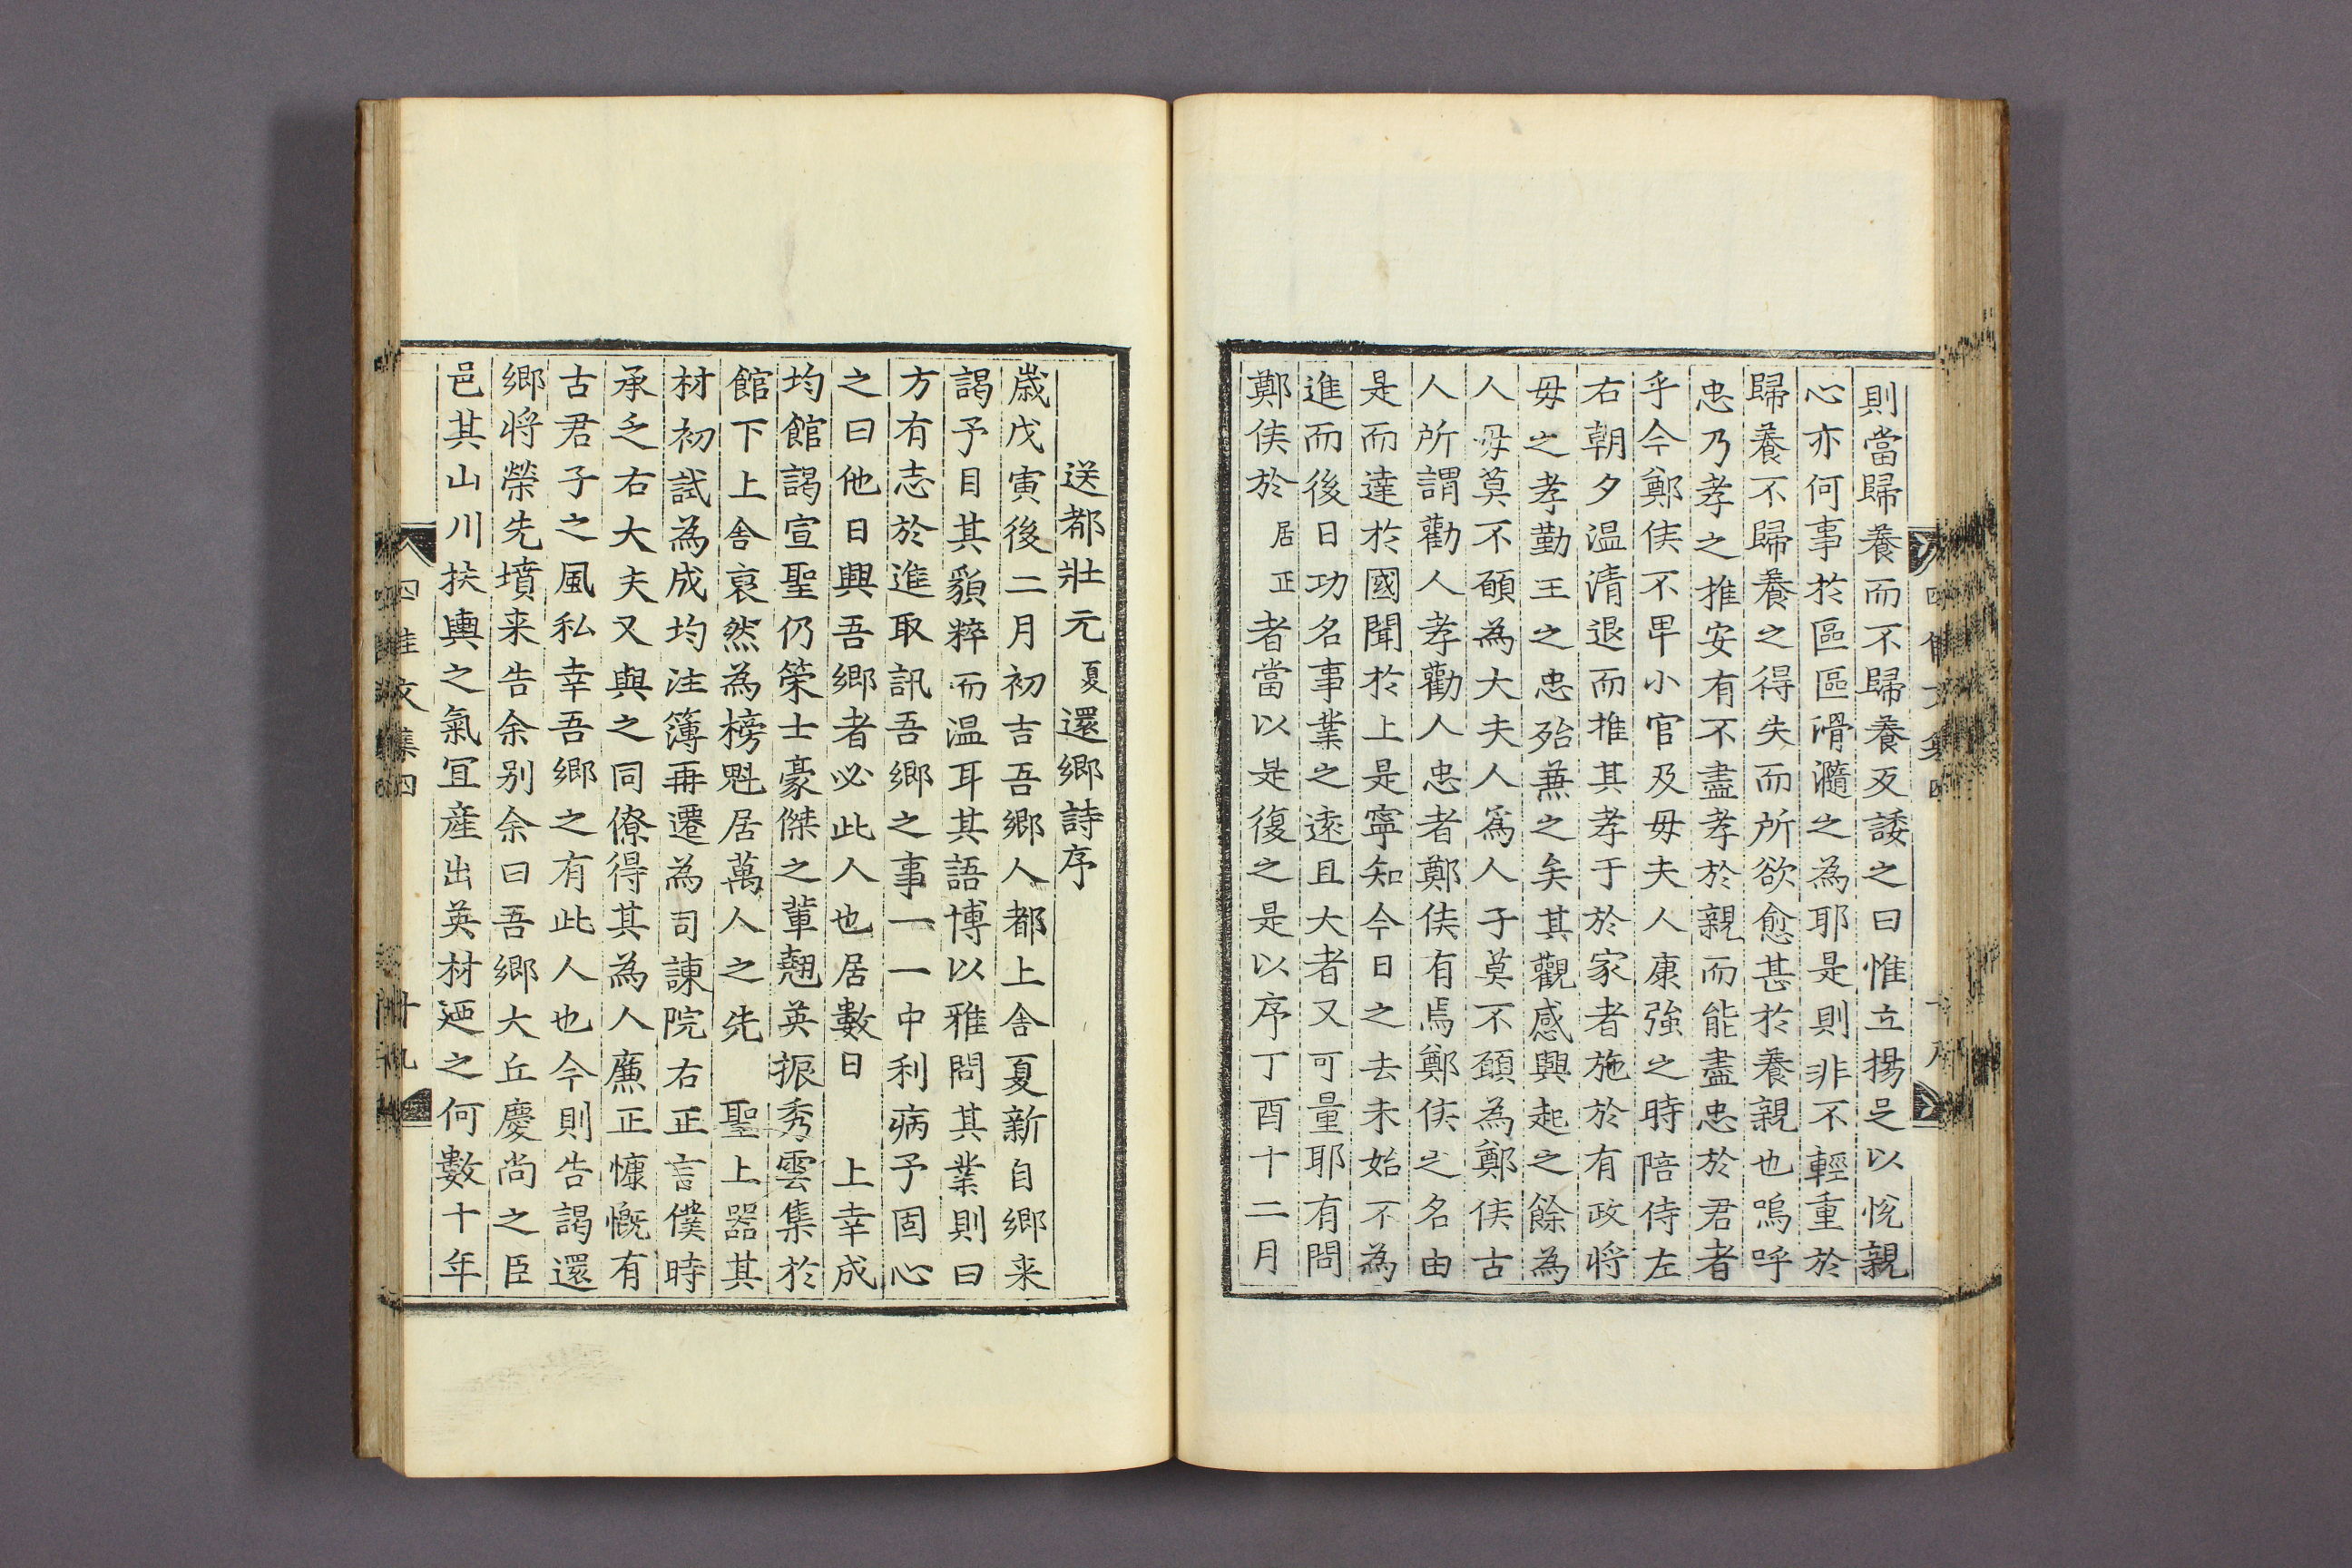 則當歸養而不歸養反諉之曰惟立揚足以悅親
心亦何事於區區滑瀡之為耶是則非不輕重於
歸養不歸養之得失而所欲愈甚於養親也嗚呼
忠乃孝之推安有不盡孝於親而能盡忠於君者
乎今鄭侯不卑小官及毋夫人康強之時陪侍左
右朝夕温清退而推其孝于於家者施於有政將
毋之孝勤王之忠殆兼之矣其觀感興起之餘為
人毋莫不願為大夫人為人子莫不願為鄭侯古
人所謂勸人孝勸人忠者鄭侯有焉鄭侯之名由
是而達於國聞於上是寧知今日之去未始不為
進而後日功名事業之遠且大者又可量耶有問
鄭侯於居正者當以是復之是以序丁酉十二月
送都壯元夏還鄉詩序
歲戊寅後二月初吉吾鄉人都上舍夏新自鄉来
謁予目其貌粹而温耳其語博以雅問其業則曰
方有志於進取訊吾鄉之事一一中利病予固心
之曰他日興吾鄉者必此人也居數日 上幸成
均館謁宣聖仍策士豪傑之輩翹英振秀雲集於
館下上舍裒然為榜魁居萬人之先 聖上器其
材初試為成均注簿再遷為司諫院右正言僕時
承乏右大夫又與之同僚得其為人廉正慷慨有
古君子之風私幸吾鄉之有此人也今則告謁還
鄉將榮先墳来告余别余曰吾鄉大丘慶尚之臣
邑其山川扶輿之氣冝産出英材迺之何數十年
四佳文集四
十九